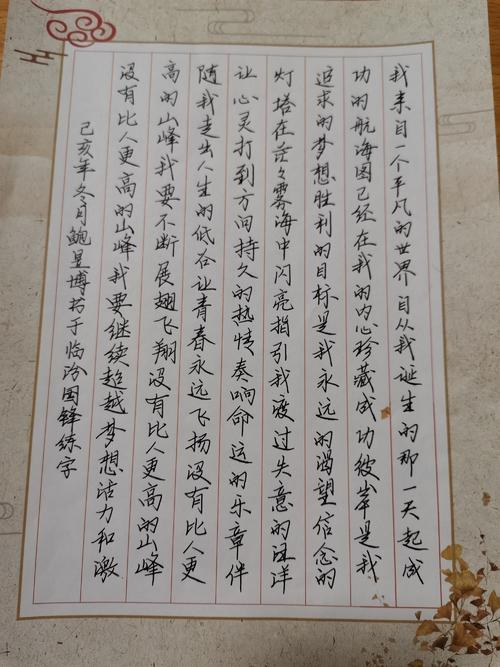 我来自一个平凡的世界自从我诞生的那一天起成
功的航海图已经在我的内心珍藏成功彼岸是我
追求的梦想胜利的目标是我永远的渴望信念的
灯塔在茫々雾海中闪亮指引我渡过失意的汪洋
让心灵打到方向持久的热情奏响命运的乐章伴
随我走出人生的低谷让青春永远飞扬没有比人更
高的山峰我要不断展翅飞翔没有比人更高的山峰
没有比人更高的山峰我要继续超越梦想活力和激
己亥年冬月鲍昱博书于临汾国锋练字